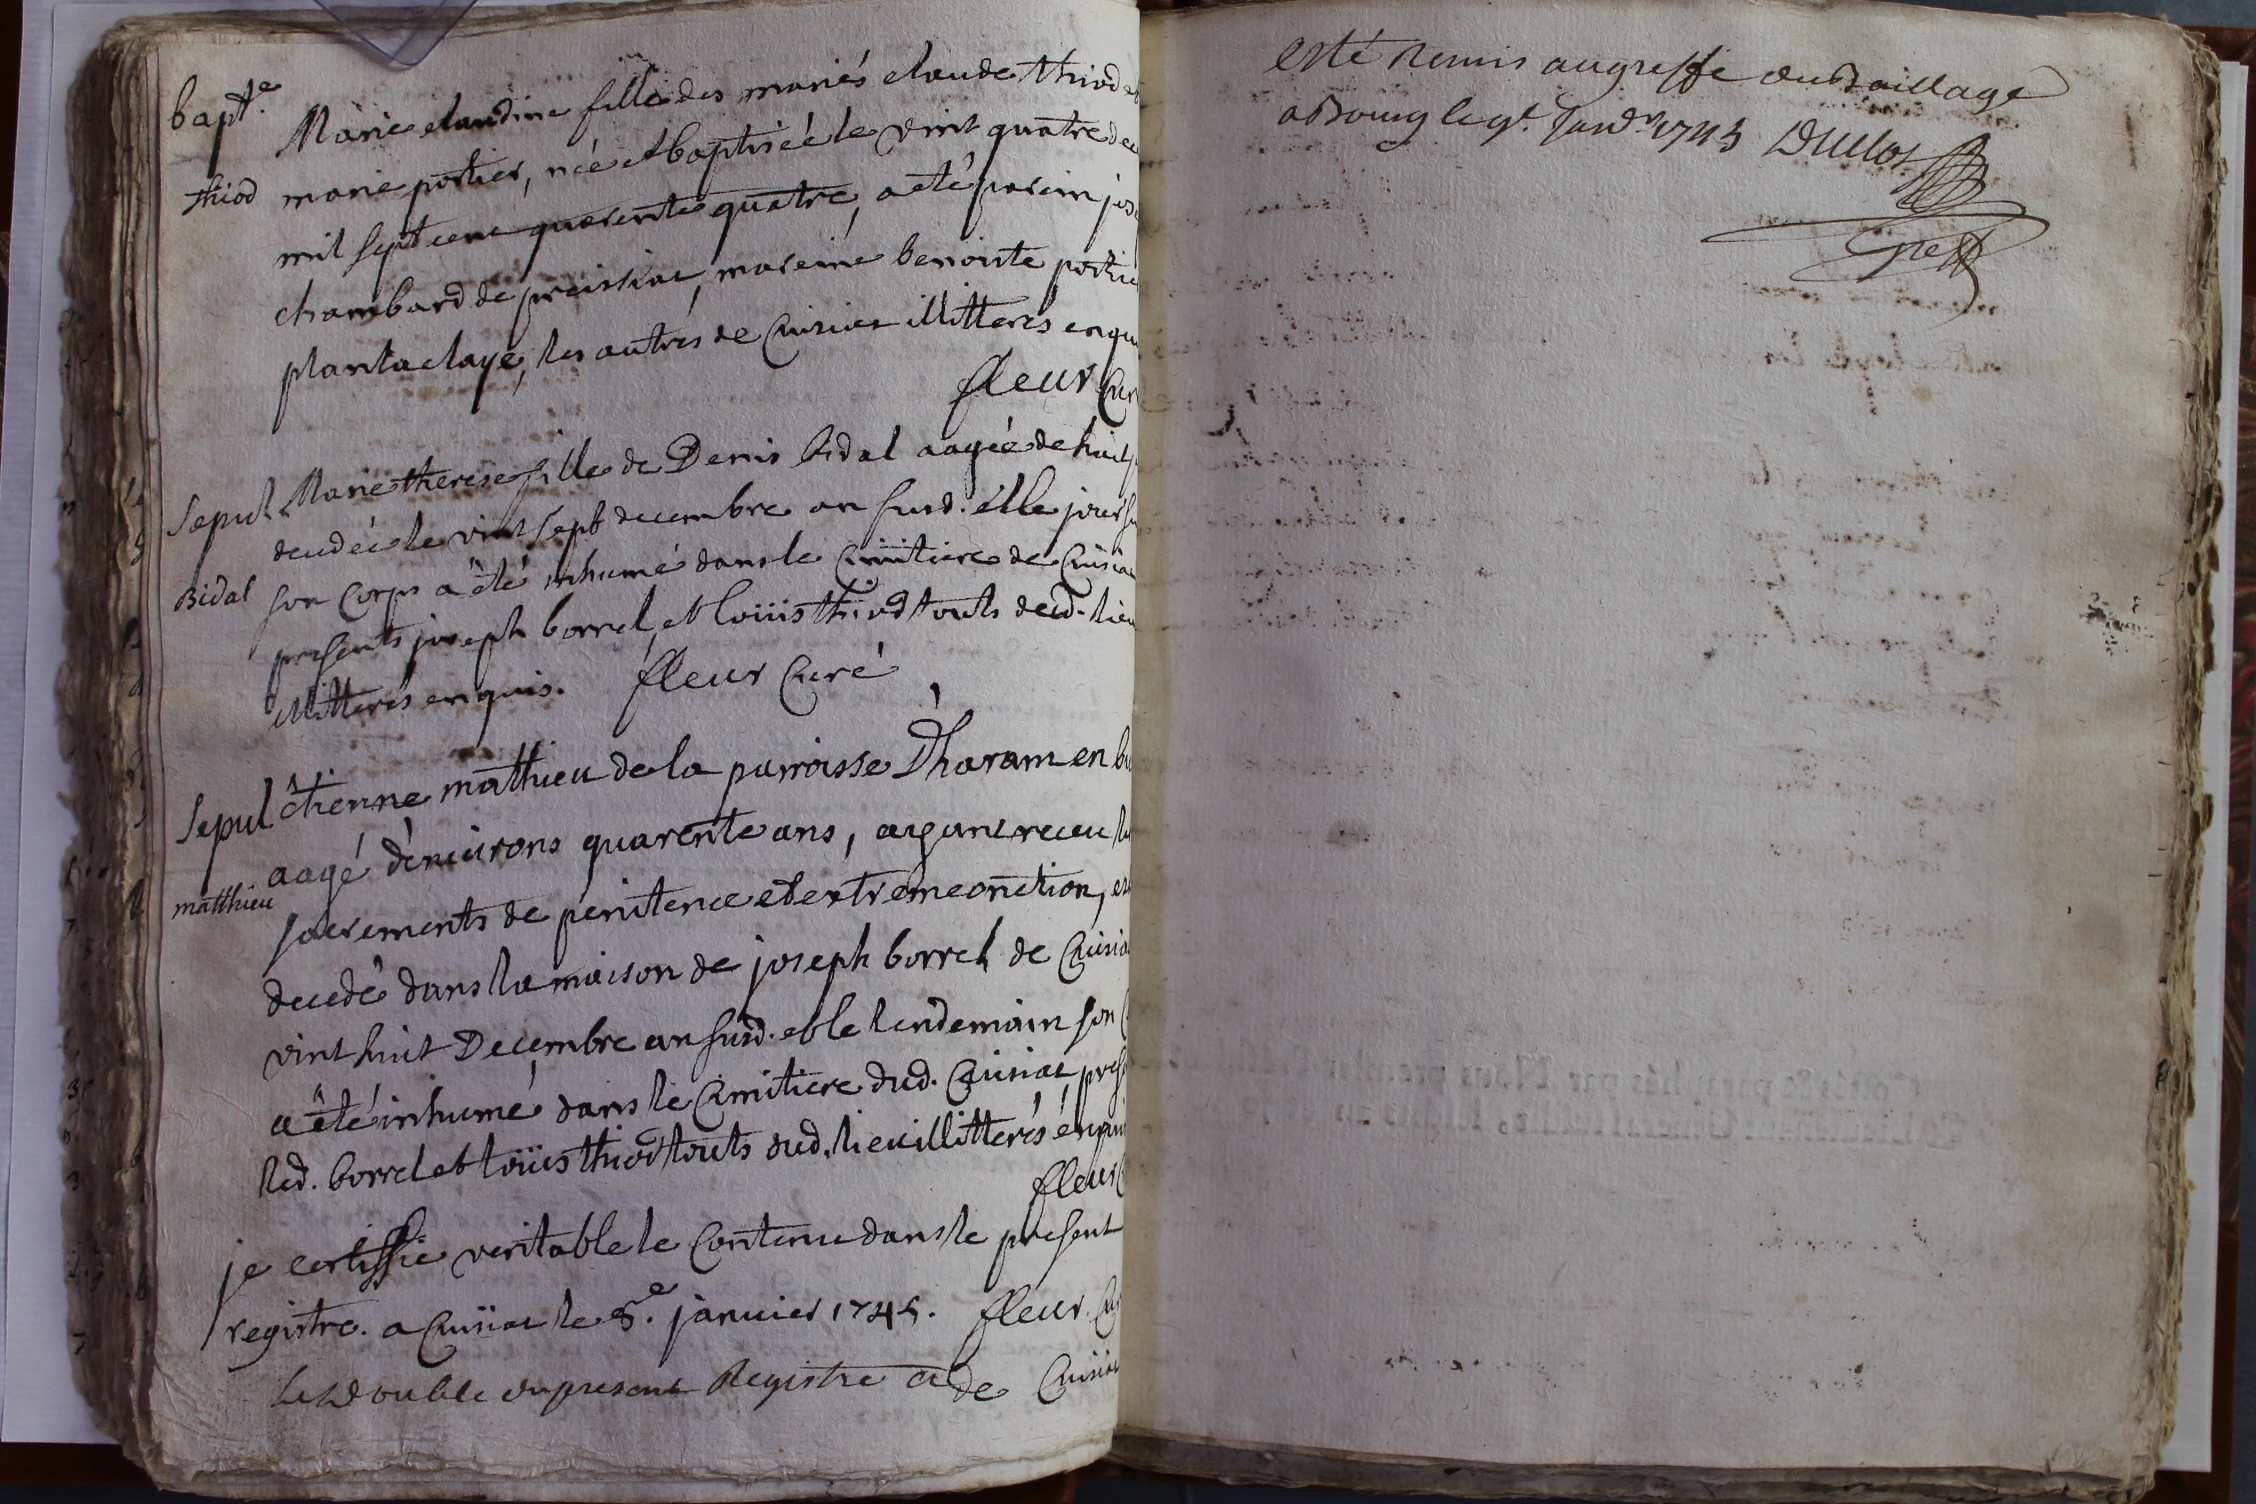 bapt.e
Marie claudine fille des mariés claude thiod et
thiod
marie portier, née et baptisée le vint quatre dec
mil sept cent quarente quatre, a eté parein jos
chambard de preissiat, mareine benoiste portie
plantaclaye, les autres de Cuisiat illitterés enqu
fleur Cur
Sepul
Marie therese fille de Denis bidal aagée de huit
decedée le vint sept decembre an susd. et le jour su
Bidal
son Corps a été inhumé dans le Cimitiere de Cuisiat
presents joseph borrel, et loüis thiod touts decd. lieu
illitterés enquis. fleur Curé
Sepul
êtienne mathieu de la parroisse D'haram en bu
aagé d'environs quarente ans, ayant receu le
matthieu
sacrements de penitence et extreme onction, est
decedé dans la maison de joseph borrel de Cuisia
vint huit Decembre an susd. et le lendemain son C
a êté inhumé dans le Cimitiere dud. Cuisiat prese
led. borrel et loüis thiod touts dud. lieu illitterés enqui
fleur C
je certiffie veritable le Contenu dans le present
registre. a Cuisiat le 8.e janvier 1745. fleur Cu
Le Double du present Registre a de Cuisiat
Esté Remis au greffe du Bailliage
a Bourg le 9e. Janv.r 1745 Duclos